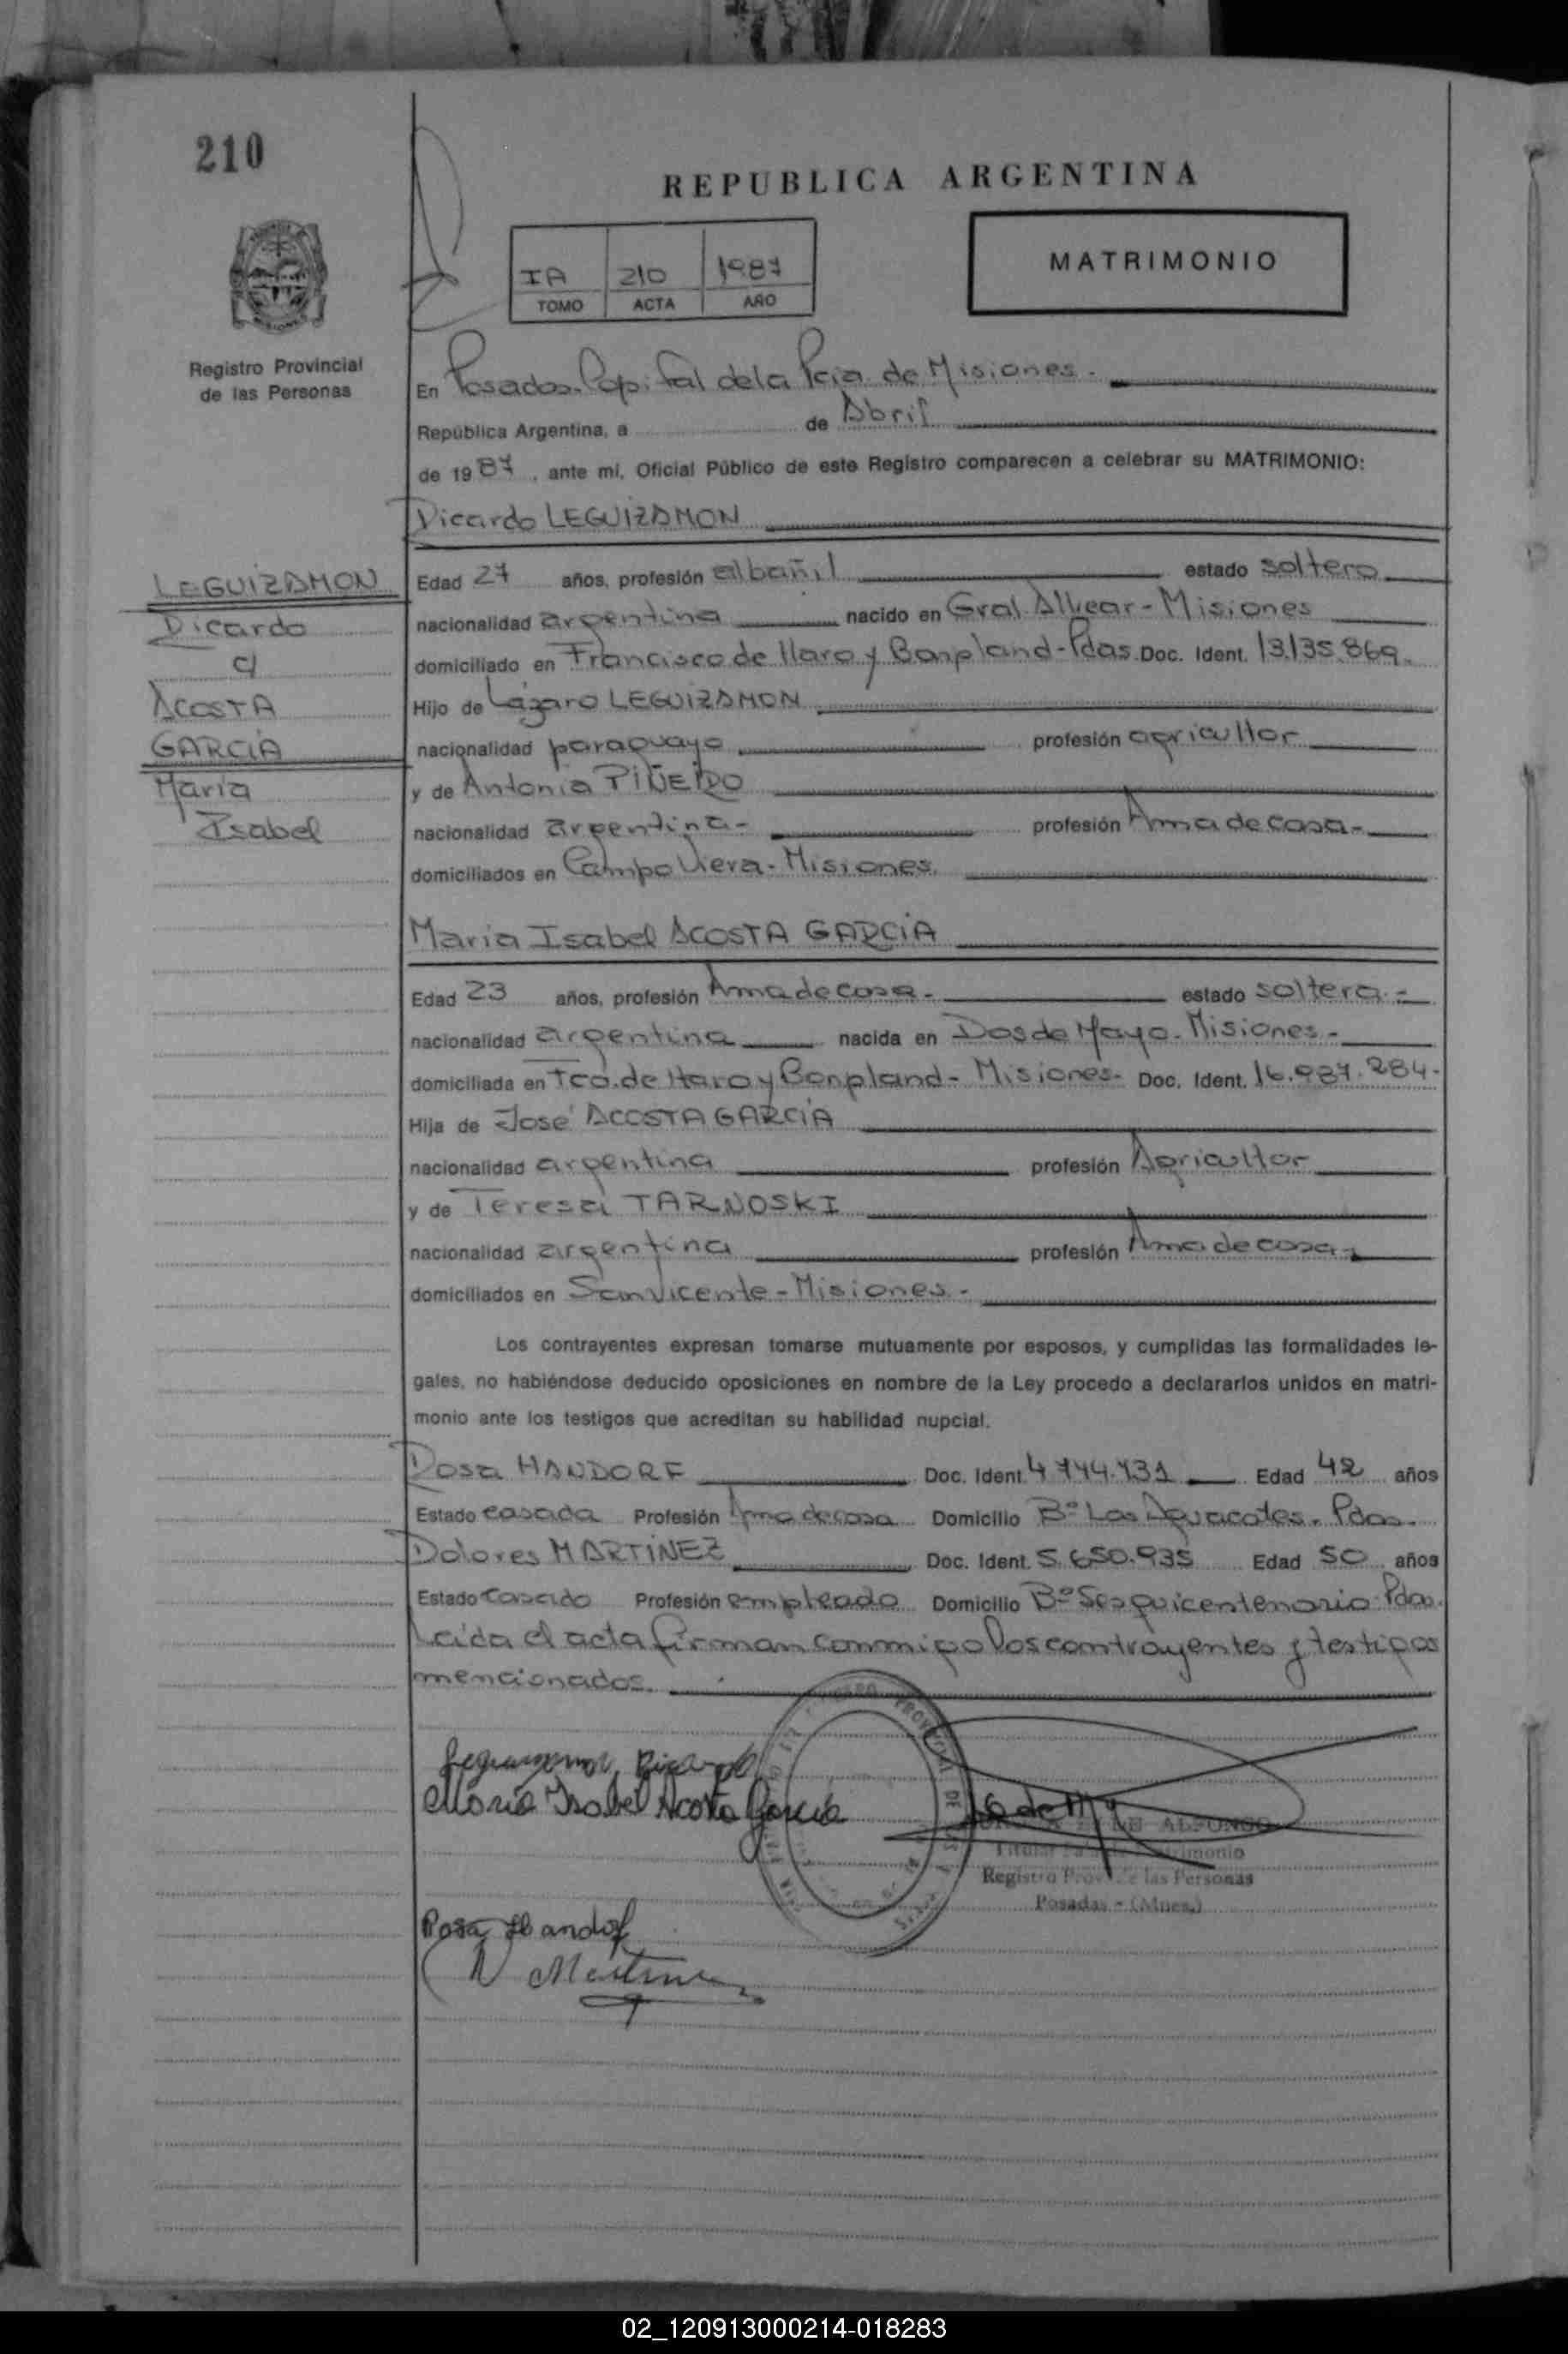 210
REPUBLICA ARGENTINA
MATRIMONIO
IA 210 1987
TOMO ACTA AÑO
Registro Provincial
de las Personas
En Posadas. Capital de la Pcia. de Misiones.
República Argentina, a de Abril
de 1987, ante mi, Oficial Público de este Registro comparecen a celebrar su MATRIMONIO:
Ricardo LEGUIZAMON
LEGUIZAMON
Ricardo
c/
ACOSTA
GARCIA
María
Isabel
Edad 27 años, profesión albañil estado soltero
nacionalidad argentina nacido en Gral. Alvear - Misiones
domiciliado en Francisco de Haro y Bonpland - Pdas. Doc. Ident. 13.135.869.
Hijo de Lázaro LEGUIZAMON
nacionalidad paraguaya profesión agricultor
y de Antonia PIÑEIRO
nacionalidad argentina - profesión Ama de casa -
domiciliados en Campo Viera - Misiones.
María Isabel ACOSTA GARCIA
Edad 23 años, profesión Ama de casa - estado soltera -
nacionalidad argentina nacida en Dos de Mayo - Misiones -
domiciliada en Fco. de Haro y Bonpland - Misiones - Doc. Ident. 16.987.284-
Hija de José ACOSTA GARCIA
nacionalidad argentina profesión Agricultor
y de Teresa TARNOSKI
nacionalidad argentina profesión Ama de casa -
domiciliados en San Vicente - Misiones -
Los contrayentes expresan tomarse mutuamente por esposos, y cumplidas las formalidades le-
gales, no habiéndose deducido oposiciones en nombre de la Ley procedo a declararlos unidos en matri-
monio ante los testigos que acreditan su habilidad nupcial.
Rosa HANDORF Doc. Ident. 4.744.731 Edad 42 años
Estado casada Profesión Ama de casa Domicilio Bº Los Aguacates. Pdas.
Dolores MARTINEZ Doc. Ident. 5.650.935 Edad 50 años
Estado casado Profesión empleado Domicilio Bº Sesquicentenario Pdas.
Leída el acta firman conmigo los contrayentes y testigos
mencionados.
Leguizamon, Ricardo
María Isabel Acosta García
DE ALFONSO
Titular Matrimonio
Registro Prov. de las Personas
Posadas - (Mnes.)
Rosa Handorf
Martinez
02_120913000214-018283